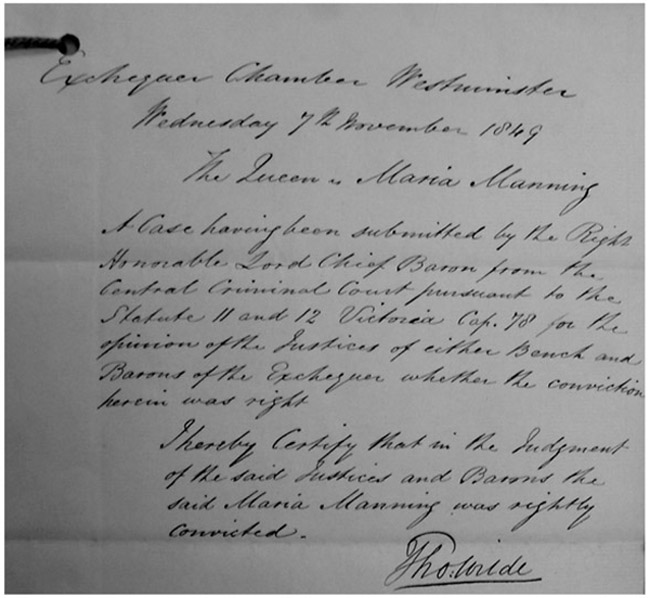 Exchequer Chamber Westminster
Wednesday 7th November 1849
The Queen v. Maria Manning
A Case having been submitted by the Right
Honorable Lord Chief Baron from the
Central Criminal Court pursuant to the
Statute 11 and 12 Victoria Cap. 78 for the
opinion of the Justices of either Bench and
Barons of the Exchequer whether the conviction
herein was right
I hereby Certify that in the Judgment
of the said Justices and Barons the
said Maria Manning was rightly
convicted.
Tho: Wilde